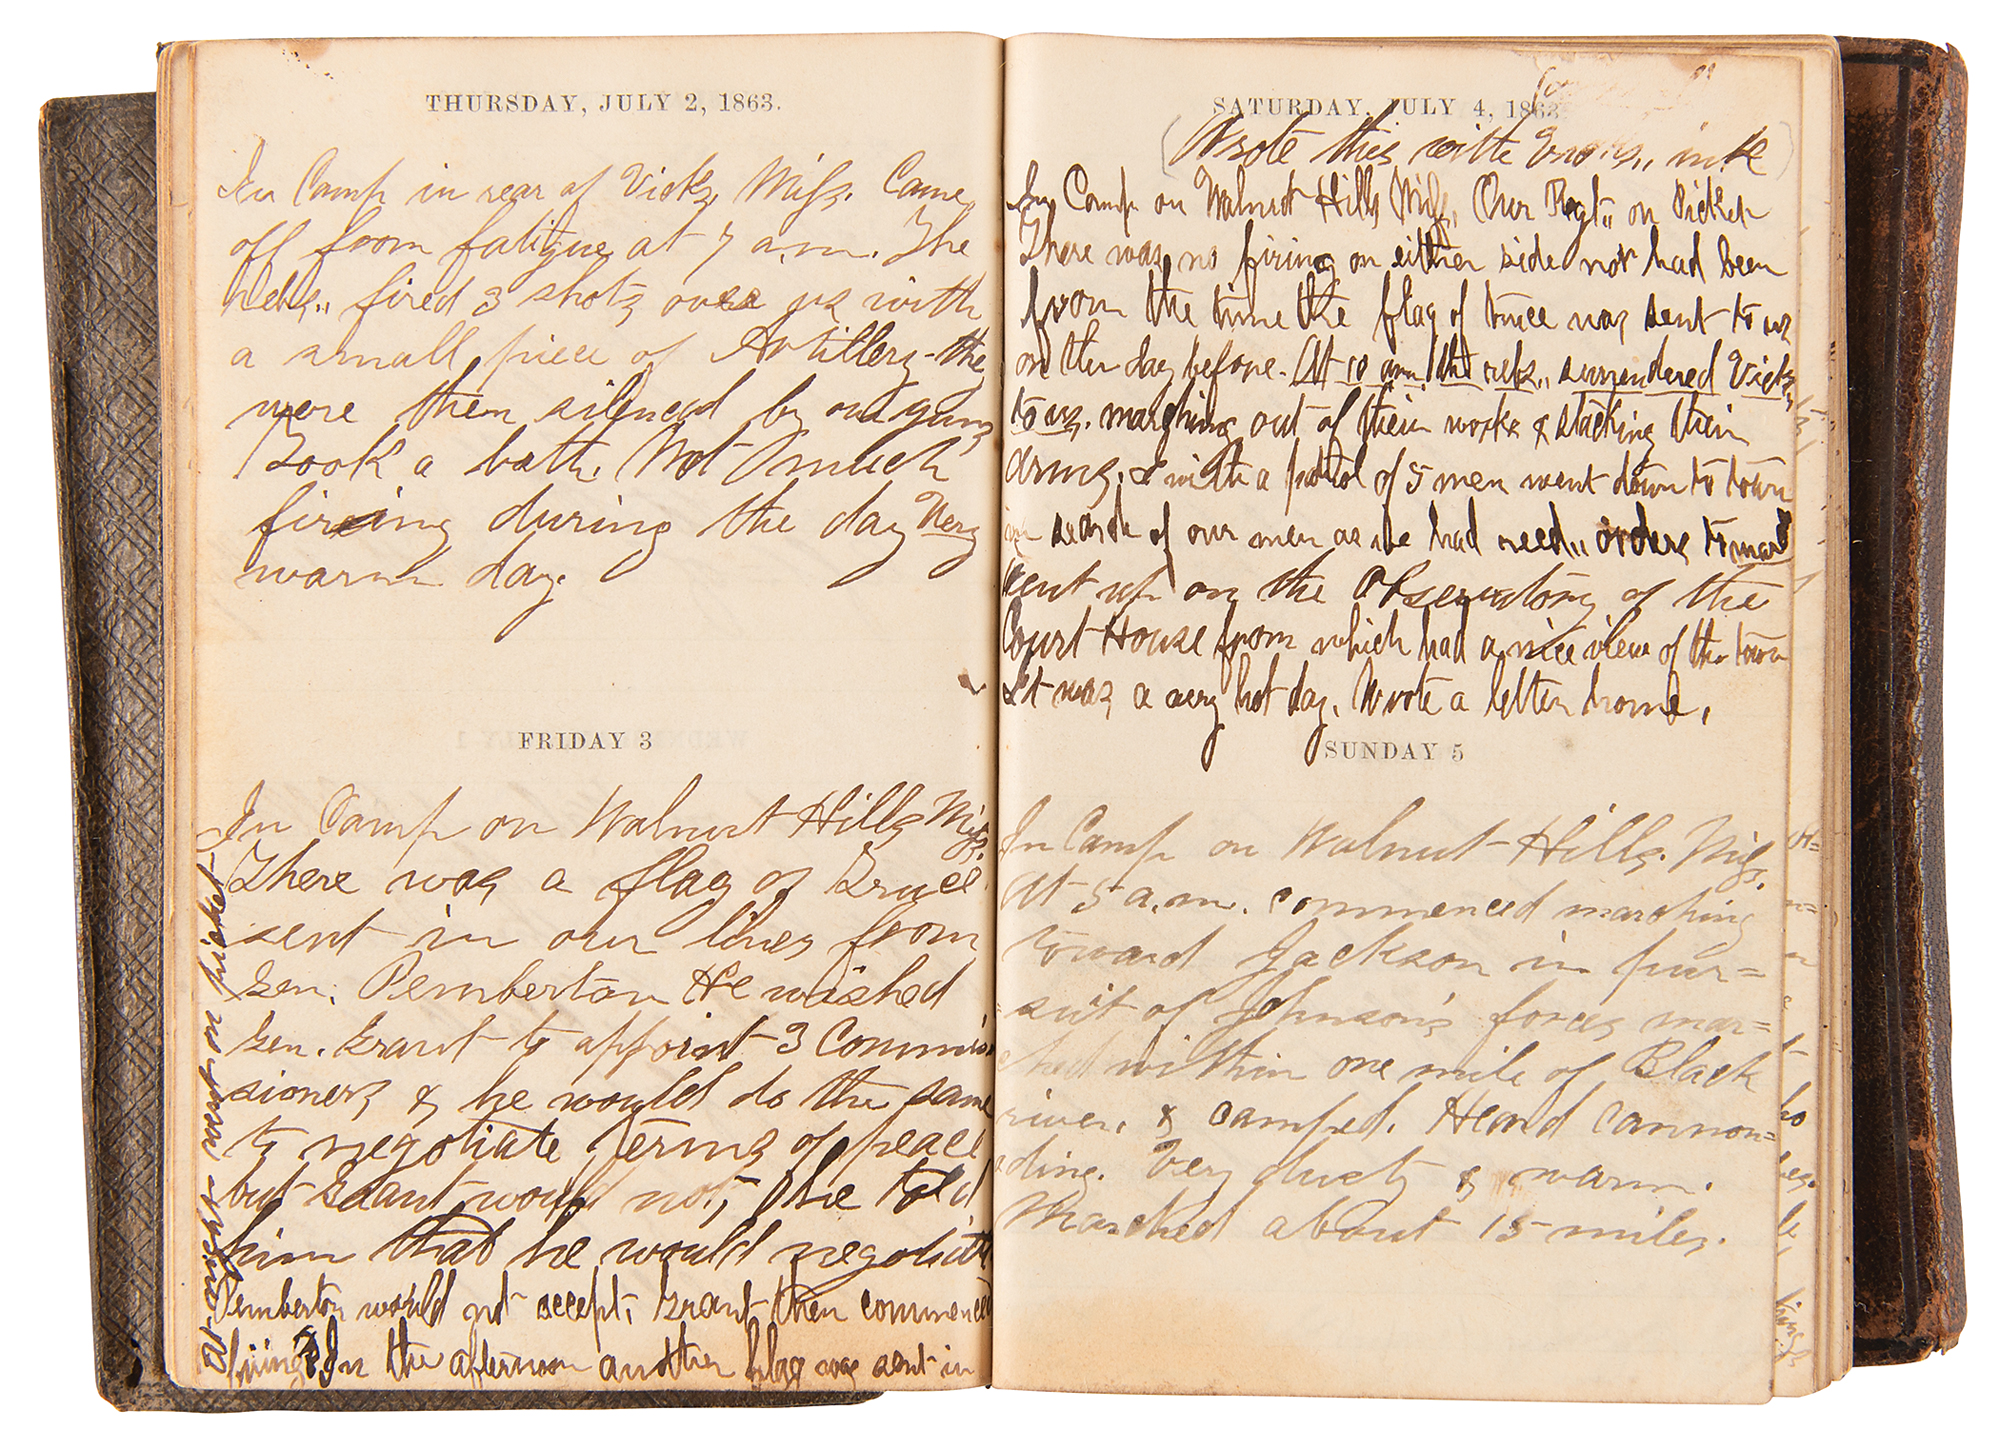 THURSDAY, JULY 2, 1863.
In Camp in rear of Vicks, Miss. Came
off from fatigue at 7 a.m. The
Rebs,, fired 3 shots over us with
a small piece of Artillery - they
were then silenced by our guns
Took a bath. Not much
fireing during the day Very
warm day.
FRIDAY 3
In Camp on Walnut Hills Miss.
There was a flag of Truce
sent in our lines from
Gen. Pemberton He wished
Gen. Grant to appoint 3 Commis
sioners & he would do the same
to negotiate terms of peace
but Grant would not, he told
him that he would negotiate
Pemberton would not accept, Grant then commenced
firing. In the afternoon another flag was sent in
At night went on picket
SATURDAY, JULY 4, 1863
(Wrote this with ink)
In Camp on Walnut Hills Miss. Our Regt,, on Picket
There was no firing on either side nor had been
from the time the flag of truce was sent to us
on the day before. At 10 am the rebs,, surrendered Vicks,
to us. marching out of their works & stacking their
arms. I with a patrol of 5 men went down to town
in search of our men as we had reed,, orders to march
went up on the Observatory of the
Court House from which had a nice view of the town
It was a very hot day. Wrote a letter home.
SUNDAY 5
In Camp on Walnut Hills. Miss.
At 5 a.m. commenced marching
toward Jackson in pur=
=suit of Johnson's forces mar=
ched within one mile of Black
river, & camped. Heard cannon=
=ding. Very dusty & warm.
Marched about 15 miles.